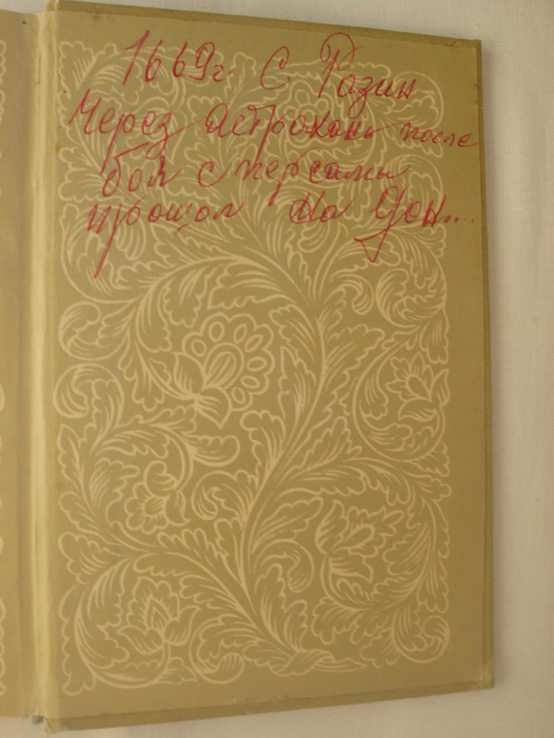 1669г. С. Разин
Через Астрахань после
боя с персами
прошол на Дон...